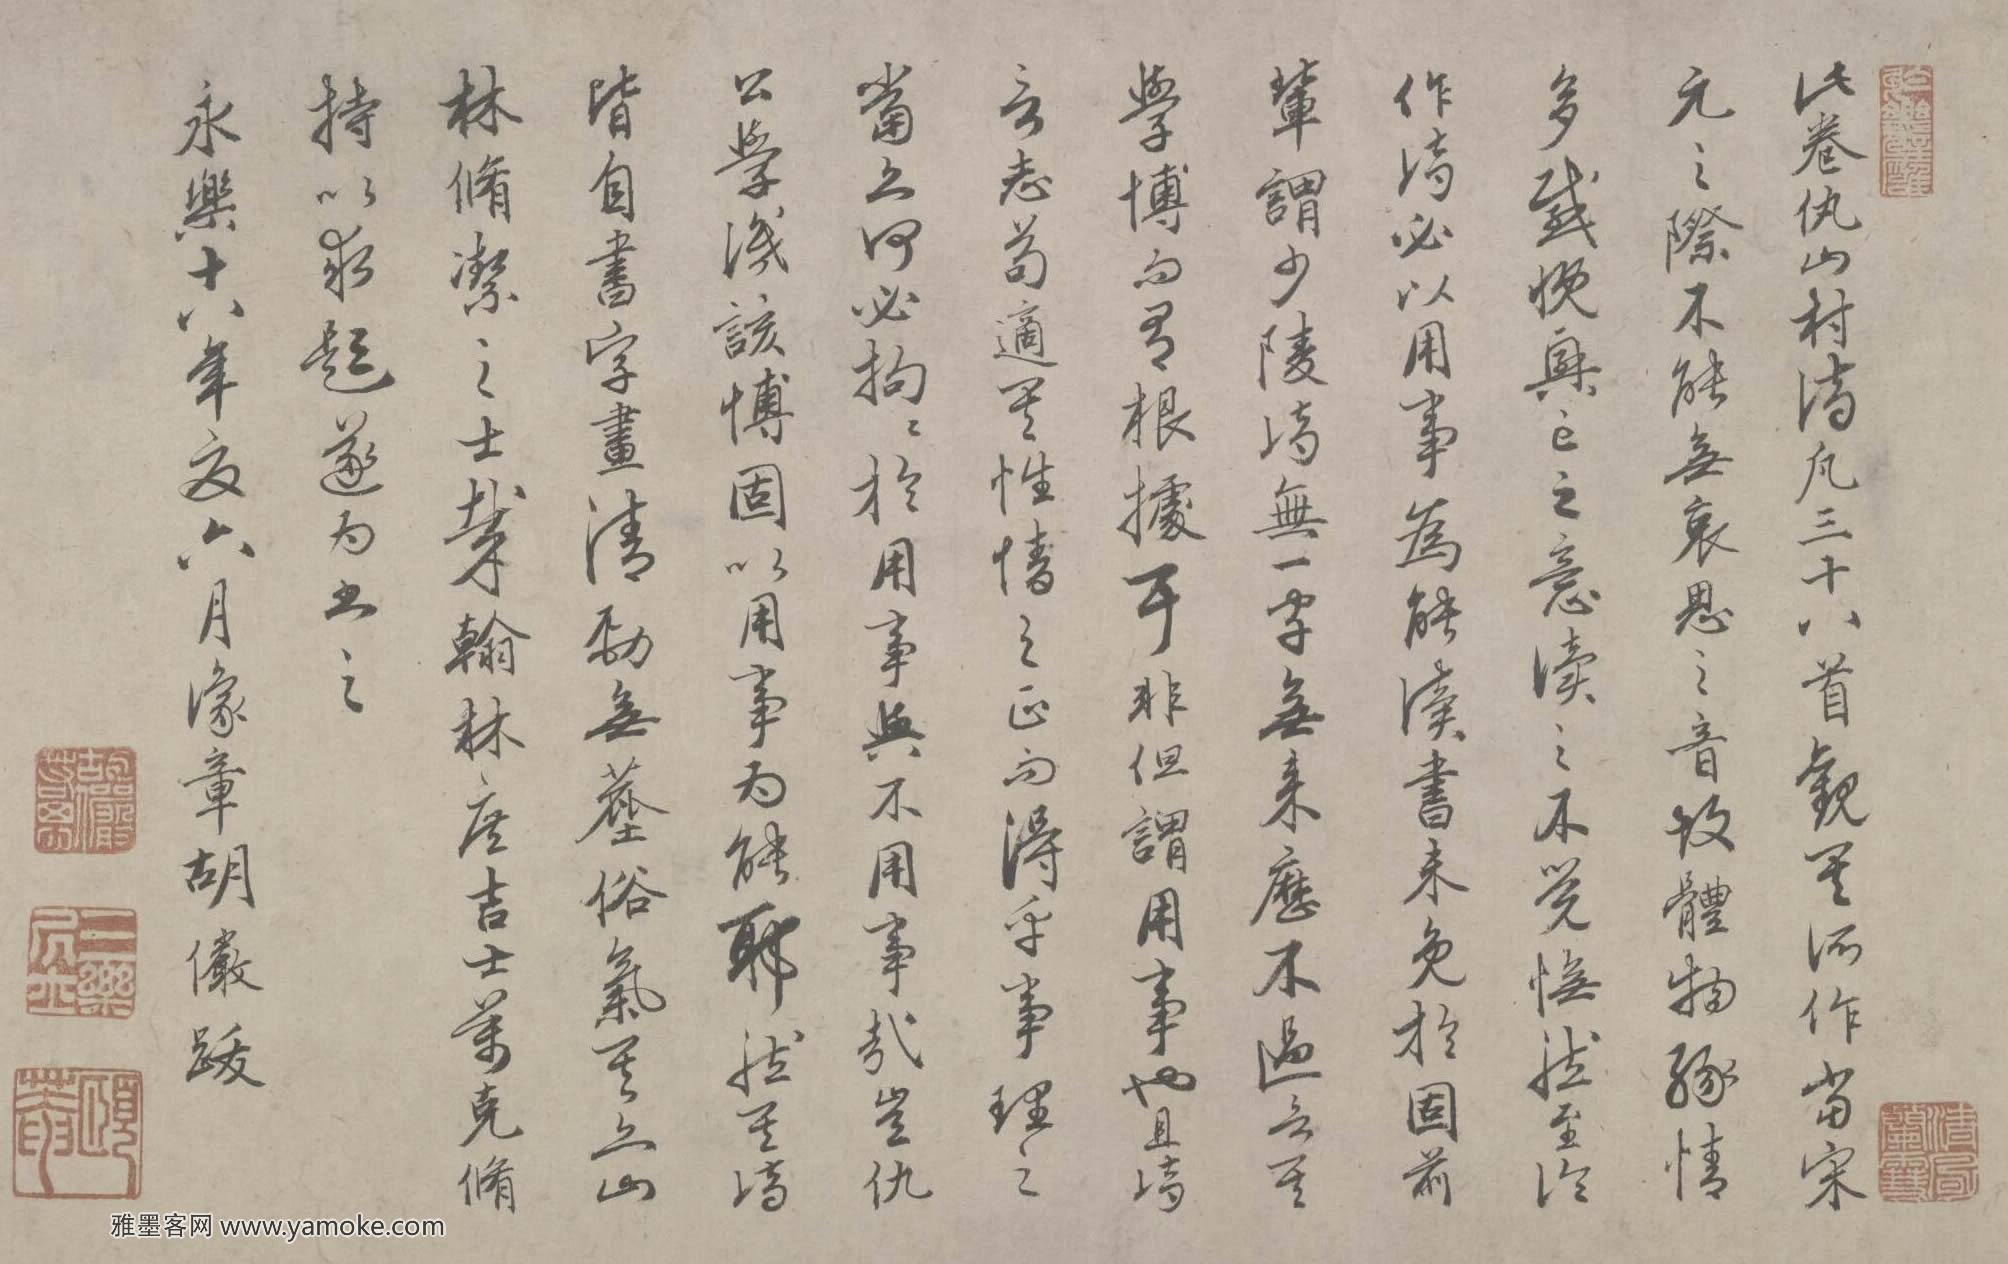 此卷仇山村诗凡三十八首觀其所作當宋
元之際不能無哀思之音故體物緣情
多感慨興亡之意讀之不覺憮然至論
作诗必以用事為能讀書未免於固前
輩謂少陵诗無一字無来歷不過言其
學博而有根據耳非但謂用事也且诗
言志苟適其性情之正而得乎事理之
當亦何必拘拘於用事與不用事哉豈仇
公學識該博固以用事为能耶然其诗
皆自書字畫清勁無塵俗氣其亦山
林脩潔之士歟翰林庶吉士萬克脩
持以求題遂为書之
永樂十八年夏六月豫章胡儼跋
雅墨客网 www.yamoke.com